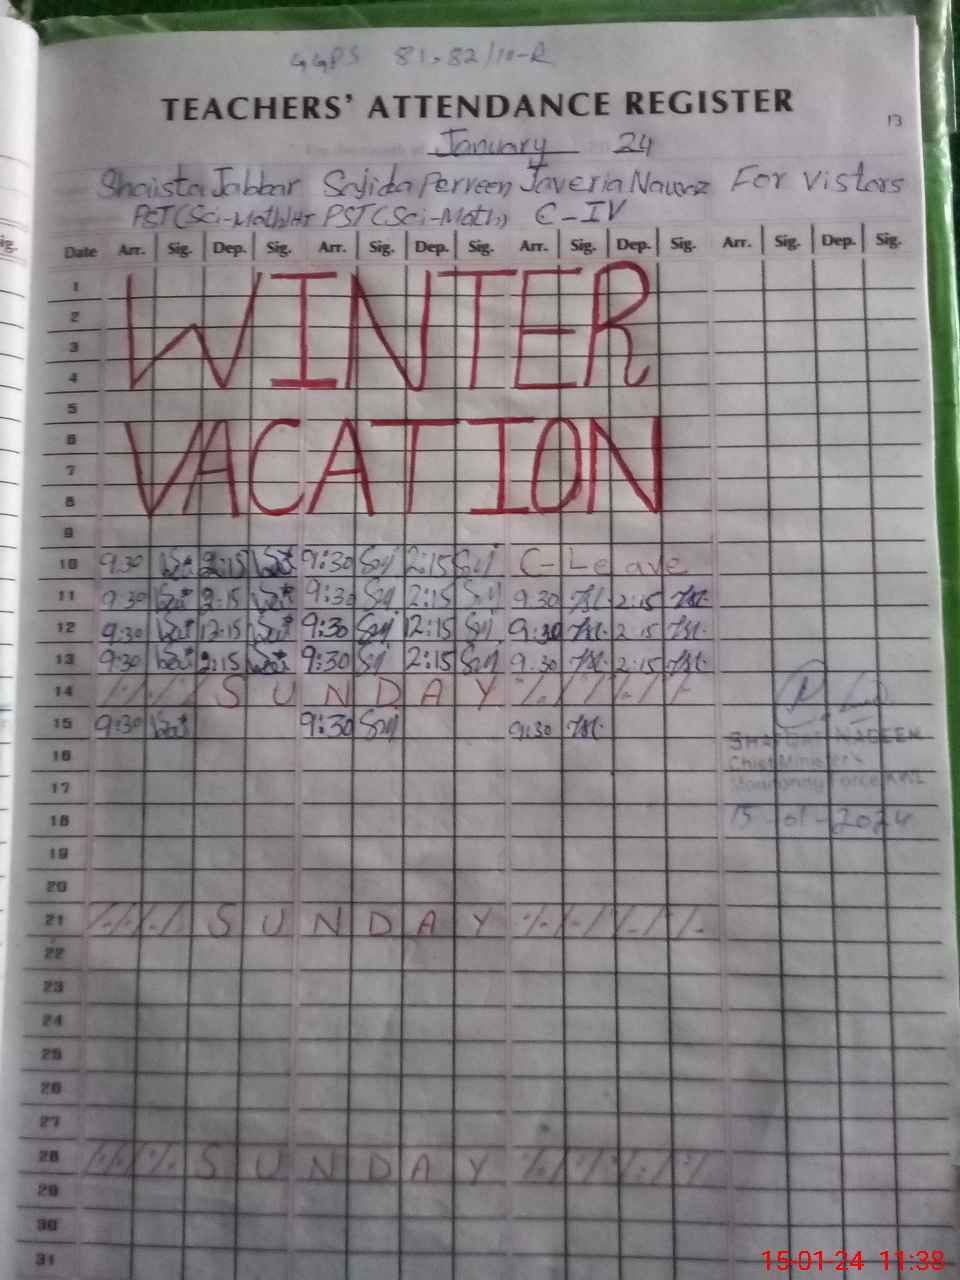 GGPS 81,82/10-R
TEACHERS' ATTENDANCE REGISTER
13
January 24
Shaista Jabbar Sajida Perveen Javeria Nawaz For Vistors
PST(Sci-Math) PST(Sci-Math) C-IV
Date Arr. Sig. Dep. Sig. Arr. Sig. Dep. Sig. Arr. Sig. Dep. Sig. Arr. Sig. Dep. Sig.
WINTER
VACATION
1
2
3
4
5
6
7
8
9
10 9:30 2:15 9:30 Saj 2:15 Saj C-Leave
11 9:30 2:15 9:30 Saj 2:15 Saj 9:30 2:15
12 9:30 12:15 9:30 Saj 12:15 Saj 9:30 2:15
13 9:30 2:15 9:30 Saj 2:15 Saj 9:30 2:15
14 SUNDAY
15 9:30 9:30 Saj 9:30
16
17
18
19
20
21 SUNDAY
22
23
24
25
26
27
28 SUNDAY
29
30
31
NADEEM
Chief Minister's
Monitoring Force
15-01-2024
15-01-24 11:38